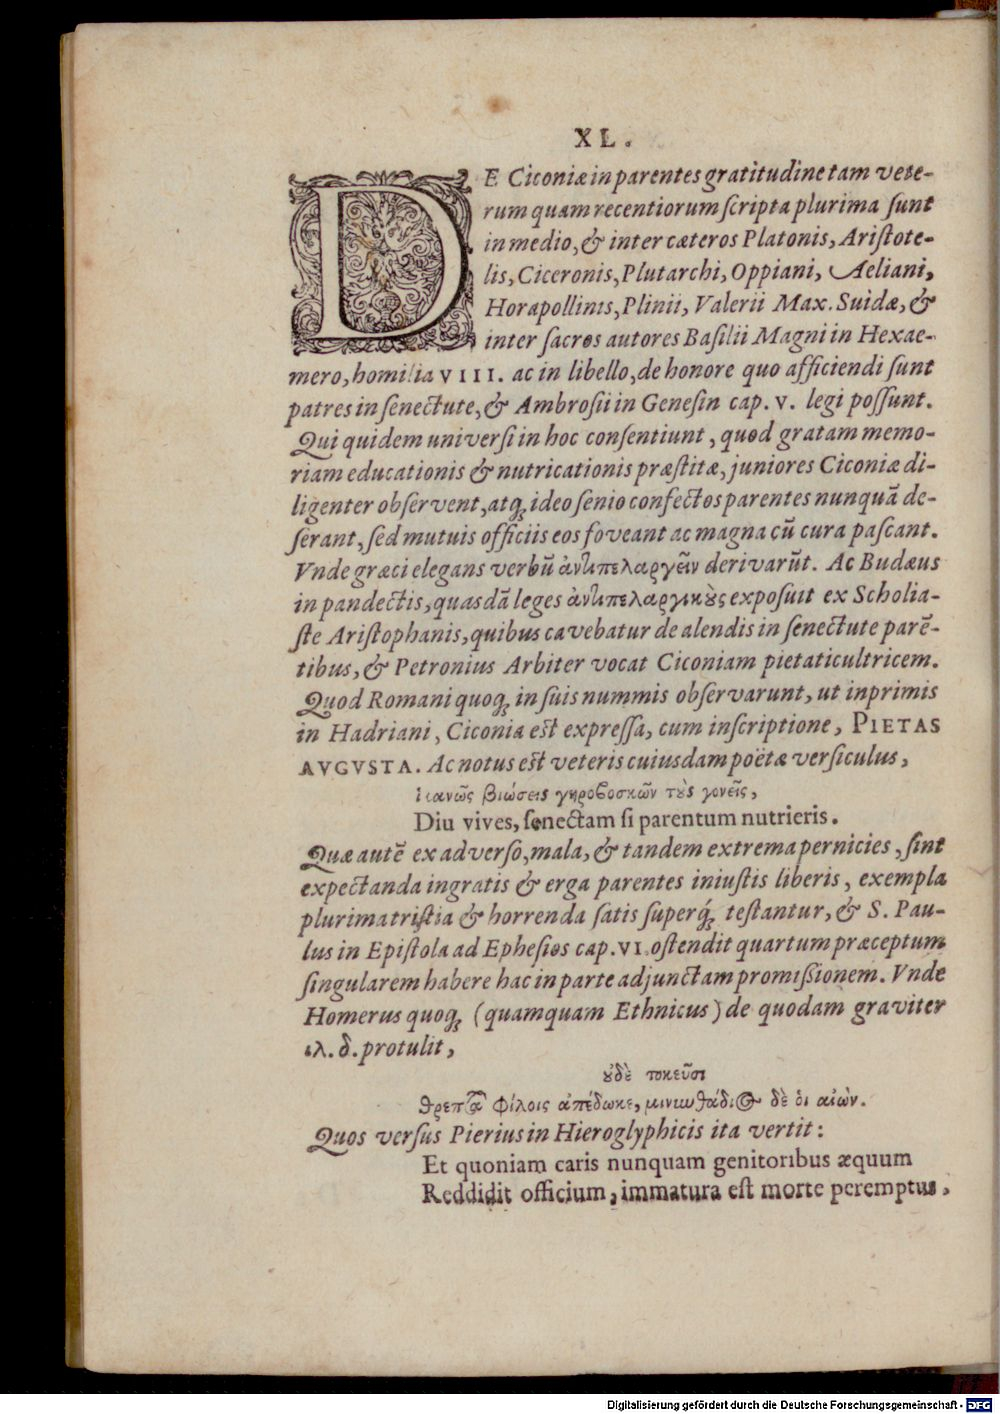 XL.
DE Ciconiæ in parentes gratitudine tam vete-
rum quam recentiorum ſcripta plurima ſunt
in medio, & inter cæteros Platonis, Ariſtote-
lis, Ciceronis, Plutarchi, Oppiani, Aeliani,
Horapollinis, Plinii, Valerii Max. Suidæ, &
inter ſacros autores Baſilii Magni in Hexae-
mero, homilia VIII. ac in libello, de honore quo afficiendi ſunt
patres in ſenectute, & Ambroſii in Geneſin cap. V. legi poſſunt.
Qui quidem univerſi in hoc conſentiunt, quod gratam memo-
riam educationis & nutricationis præſtitæ, juniores Ciconiæ di-
ligenter obſervent, atq́ꝫ ideo ſenio confectos parentes nunquã de-
ſerant, ſed mutuis officiis eos foveant ac magna cũ cura paſcant.
Vnde græci elegans verbũ ἀντιπελαργεῖν derivarũt. Ac Budæus
in pandectis, quasdã leges ἀντιπελαργικȣ̀ς expoſuit ex Scholia-
ſte Ariſtophanis, quibus cavebatur de alendis in ſenectute parẽ-
tibus, & Petronius Arbiter vocat Ciconiam pietaticultricem.
Quod Romani quoqꝫ in ſuis nummis obſervarunt, ut inprimis
in Hadriani, Ciconia eſt expreſſa, cum inſcriptione, PIETAS
AVGVSTA. Ac notus eſt veteris cuiusdam poëtæ verſiculus,
Ἱκανῶς βιώσεις γηροβοσκῶν τȣ̀ς γονεῖς,
Diu vives, ſenectam ſi parentum nutrieris.
Quæ autẽ ex adverſo, mala, & tandem extrema pernicies, ſint
expectanda ingratis & erga parentes iniuſtis liberis, exempla
plurima triſtia & horrenda ſatis ſuperq́ꝫ teſtantur, & S. Pau-
lus in Epiſtola ad Epheſios cap. VI. oſtendit quartum præceptum
ſingularem habere hac in parte adjunctam promißionem. Vnde
Homerus quoqꝫ (quamquam Ethnicus) de quodam graviter
ιλ. δ. protulit,
ȣ̓δὲ τοκεῦσι
θρεπτα φίλοις ἀπέδωκε, μινυνθάδιος δὲ ὁι αἰών.
Quos verſus Pierius in Hieroglyphicis ita vertit:
Et quoniam caris nunquam genitoribus æquum
Reddidit officium, immatura eſt morte peremptus,
Digitalisierung gefördert durch die Deutsche Forschungsgemeinschaft - DFG